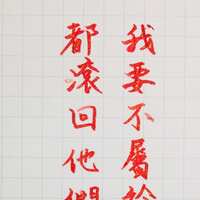 我要不屬於
都滾回他們